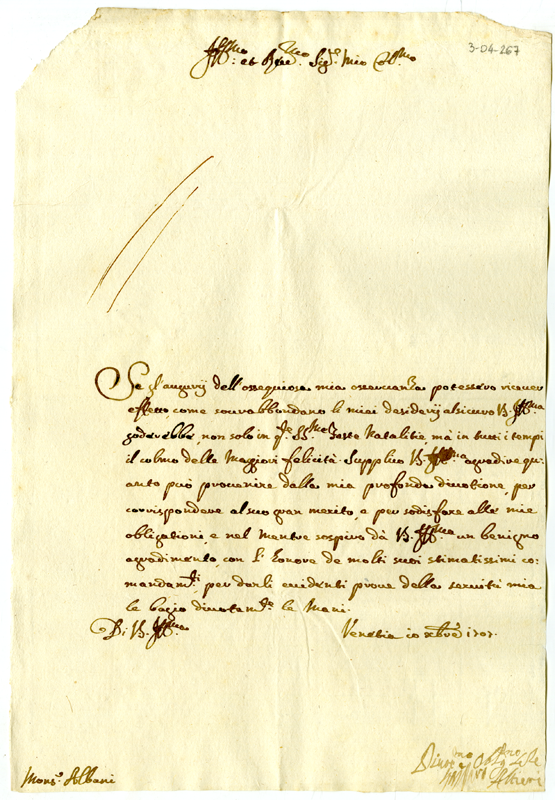 Ill.mo et Rev.mo Sig.r mio Col.mo
3-04-267
Se gl'augurij dell'ossequiosa mia osservanza potessero ricever
effetto come sourabbondano li miei desiderij al sicuro V. S. Ill.ma
goderebbe, non solo in q.te S.S.me Feste Natalitie, mà in tutti i tempi
il colmo delle Maggiori felicità. Supplico V. S. Ill.ma agradire qu-
anto può provenire dalla mia profonda divotione, per
corrispondere al suo gran merito, e per sodisfare alle mie
obligationi, e nel mentre sospiro dà V. S. Ill.ma un benigno
agradimento, con l'honore de molti suoi stimatissimi co-
mandam.ti per darli evidenti prove della servitù mia
le bagio divotam.te le Mani.
Di V. S. Ill.ma
Venetia 10 xbre 1707.
Mons.r Albani
Divot.mo Oblig.mo